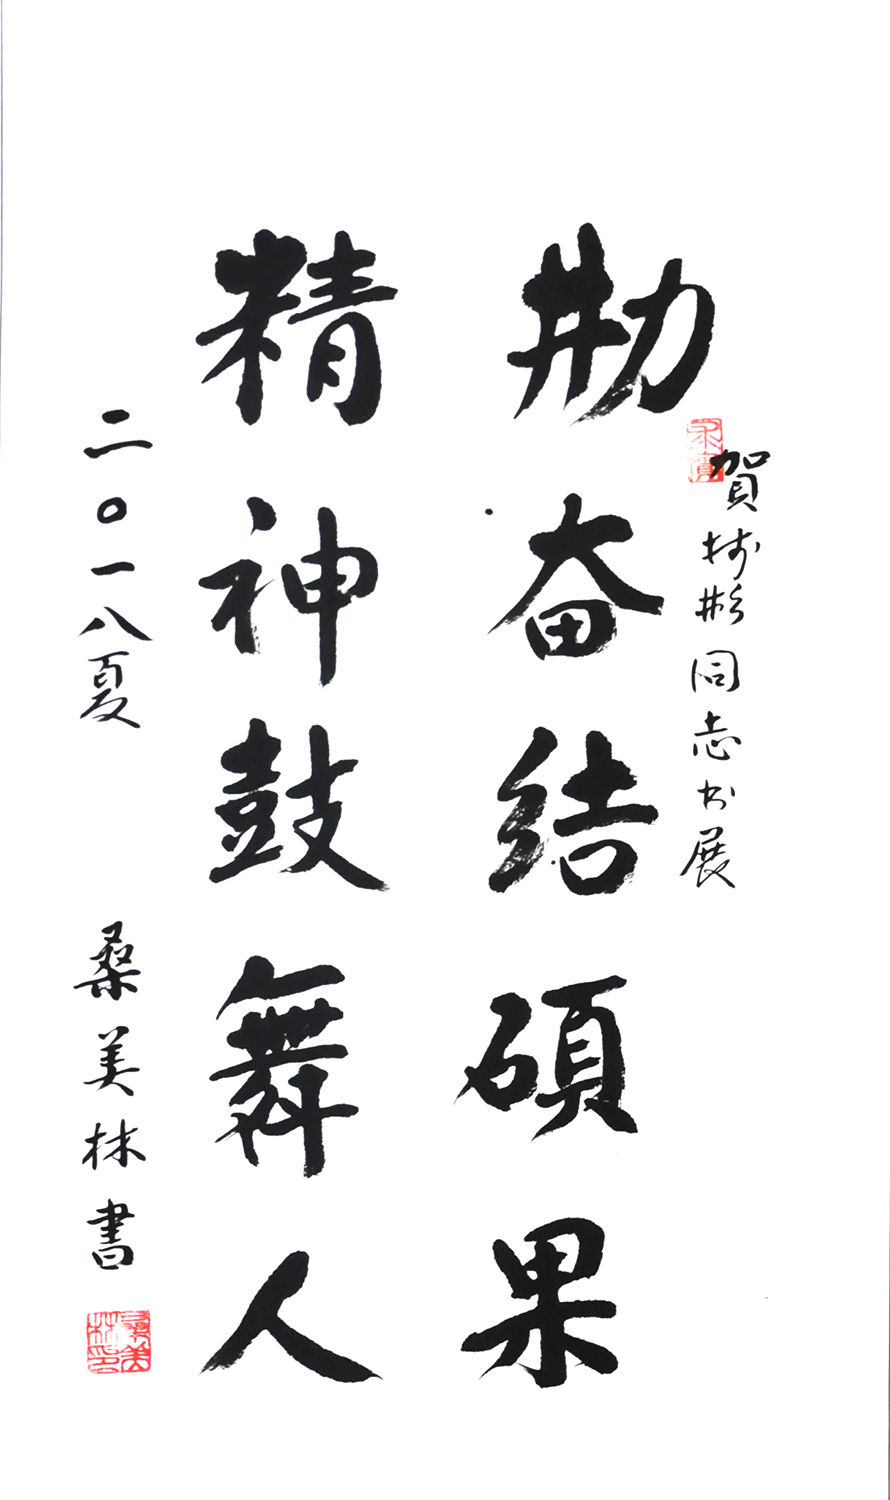 賀树彬同志书展
勤奋结硕果
精神鼓舞人
二〇一八夏 桑美林書
桑美林印